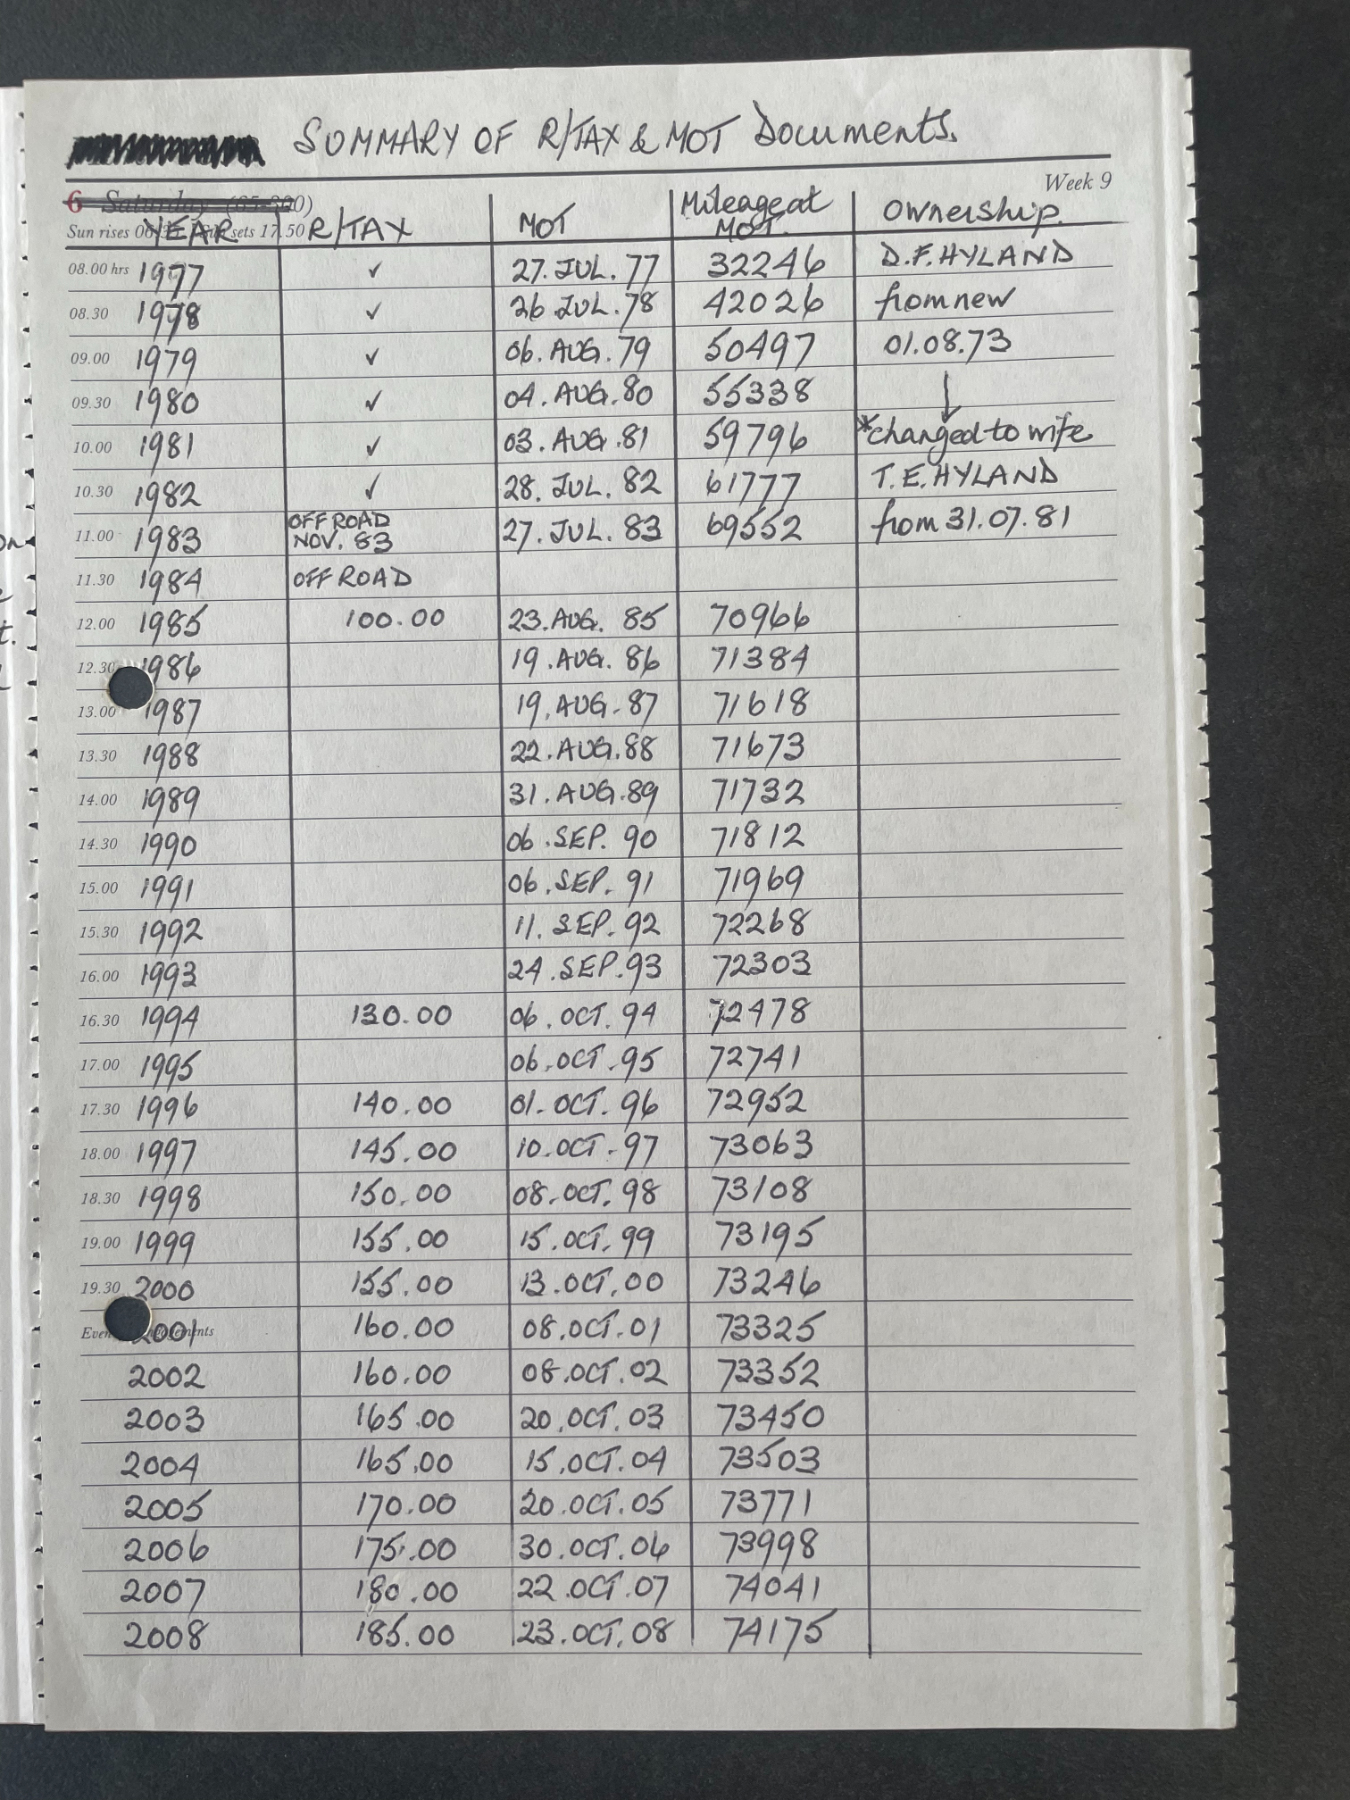 SUMMARY OF R/TAX & MOT Documents.
Week 9
6 Saturday (65-300)
Sun rises Sun sets 17.50
YEAR R/TAX MOT Mileage at MOT. Ownership.
08.00 hrs 1977 ✓ 27. JUL. 77 32246 D.F. HYLAND
08.30 1978 ✓ 26 JUL. 78 42026 from new
09.00 1979 ✓ 06. AUG. 79 50497 01.08.73
09.30 1980 ✓ 04. AUG. 80 55338 ↓
10.00 1981 ✓ 03. AUG. 81 59796 *changed to wife
10.30 1982 ✓ 28. JUL. 82 61777 T.E. HYLAND
11.00 1983 OFF ROAD NOV. 83 27. JUL. 83 69552 from 31.07.81
11.30 1984 OFF ROAD
12.00 1985 100.00 23. AUG. 85 70966
12.30 1986 19. AUG. 86 71384
13.00 1987 19. AUG. 87 71618
13.30 1988 22. AUG. 88 71673
14.00 1989 31. AUG. 89 71732
14.30 1990 06. SEP. 90 71812
15.00 1991 06. SEP. 91 71969
15.30 1992 11. SEP. 92 72268
16.00 1993 24. SEP. 93 72303
16.30 1994 130.00 06. OCT. 94 72478
17.00 1995 06. OCT. 95 72741
17.30 1996 140.00 01. OCT. 96 72952
18.00 1997 145.00 10. OCT. 97 73063
18.30 1998 150.00 08. OCT. 98 73108
19.00 1999 155.00 15. OCT. 99 73195
19.30 2000 155.00 13. OCT. 00 73246
2001 160.00 08. OCT. 01 73325
2002 160.00 08. OCT. 02 73352
2003 165.00 20. OCT. 03 73450
2004 165.00 15. OCT. 04 73503
2005 170.00 20. OCT. 05 73771
2006 175.00 30. OCT. 06 73998
2007 180.00 22. OCT. 07 74041
2008 185.00 23. OCT. 08 74175